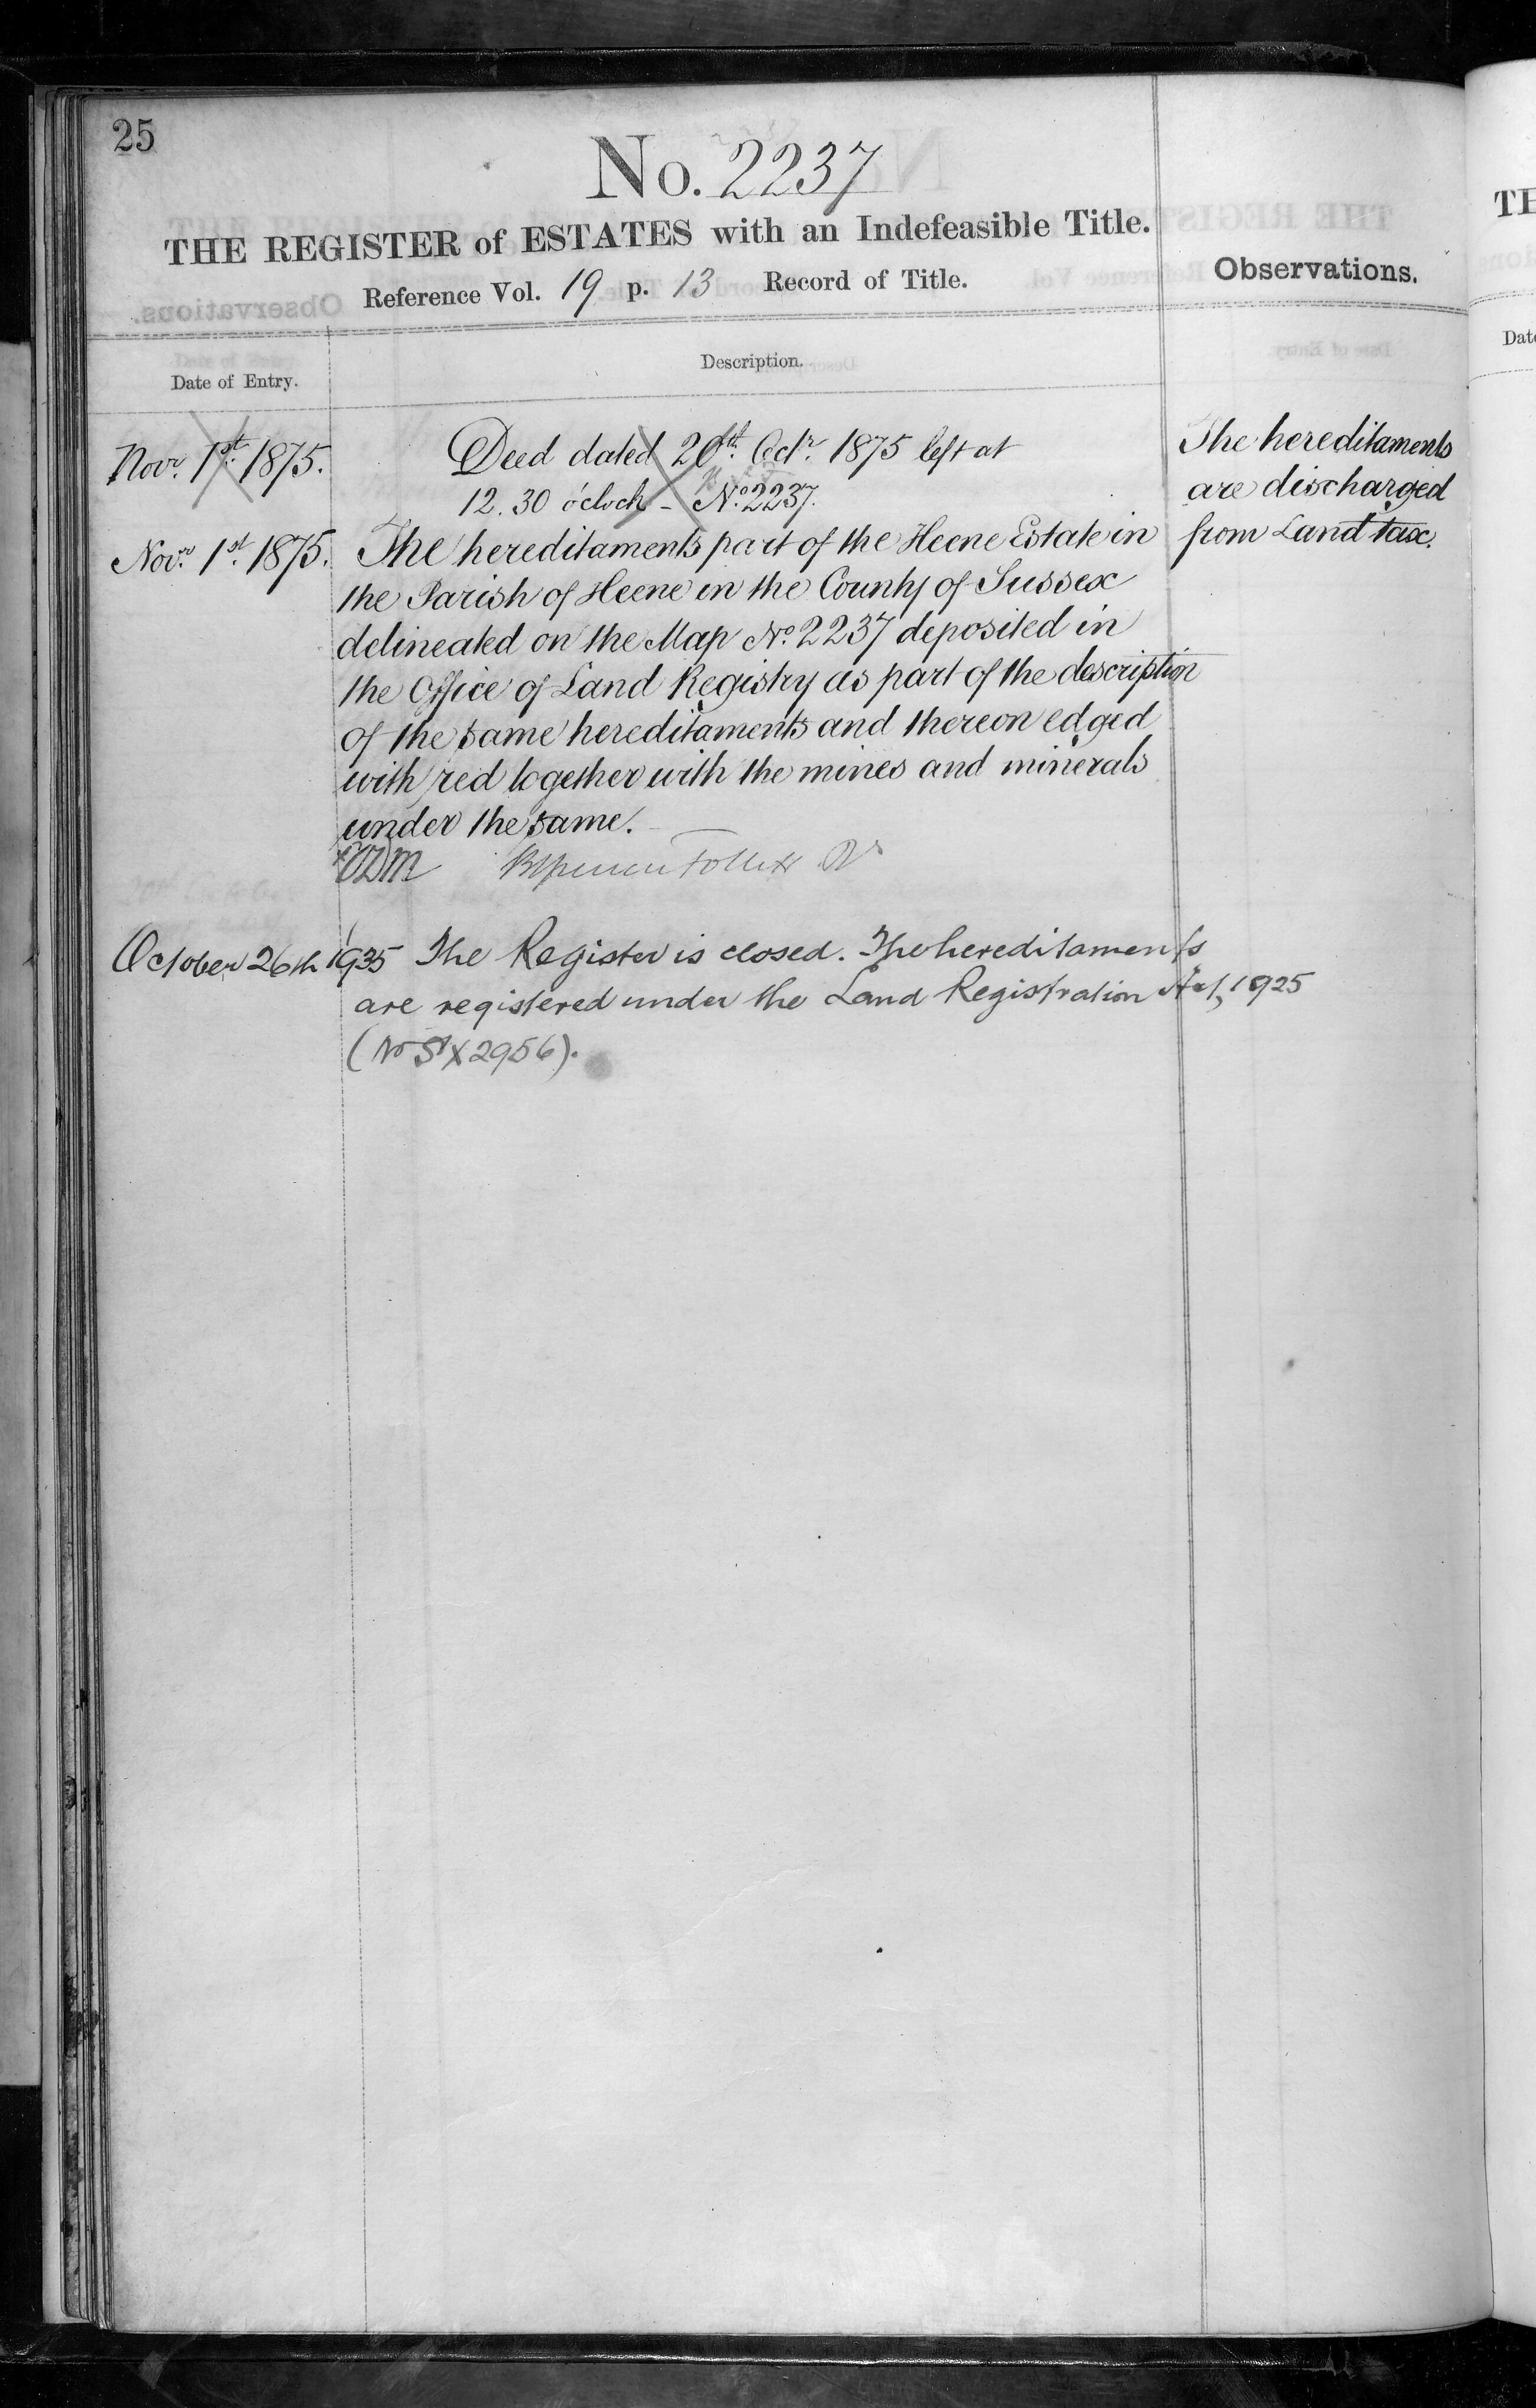 25
No. 2237
THE REGISTER of ESTATES with an Indefeasible Title.
Reference Vol. 19 p. 13 Record of Title.
Observations.
Date of Entry.
Description.
Novr. 1st. 1875.
Deed dated 20th. Octr. 1875 left at
12.30 o'clock - No. 2237.
Novr. 1st. 1875.
The hereditaments part of the Heene Estate in
the Parish of Heene in the County of Sussex
delineated on the Map No. 2237 deposited in
the Office of Land Registry as part of the description
of the same hereditaments and thereon edged
with red together with the mines and minerals
under the same.
The hereditaments
are discharged
from Land tax.
October 26th 1935 The Register is closed. The hereditaments
are registered under the Land Registration Act, 1925
(No SX2956).
TH
Date